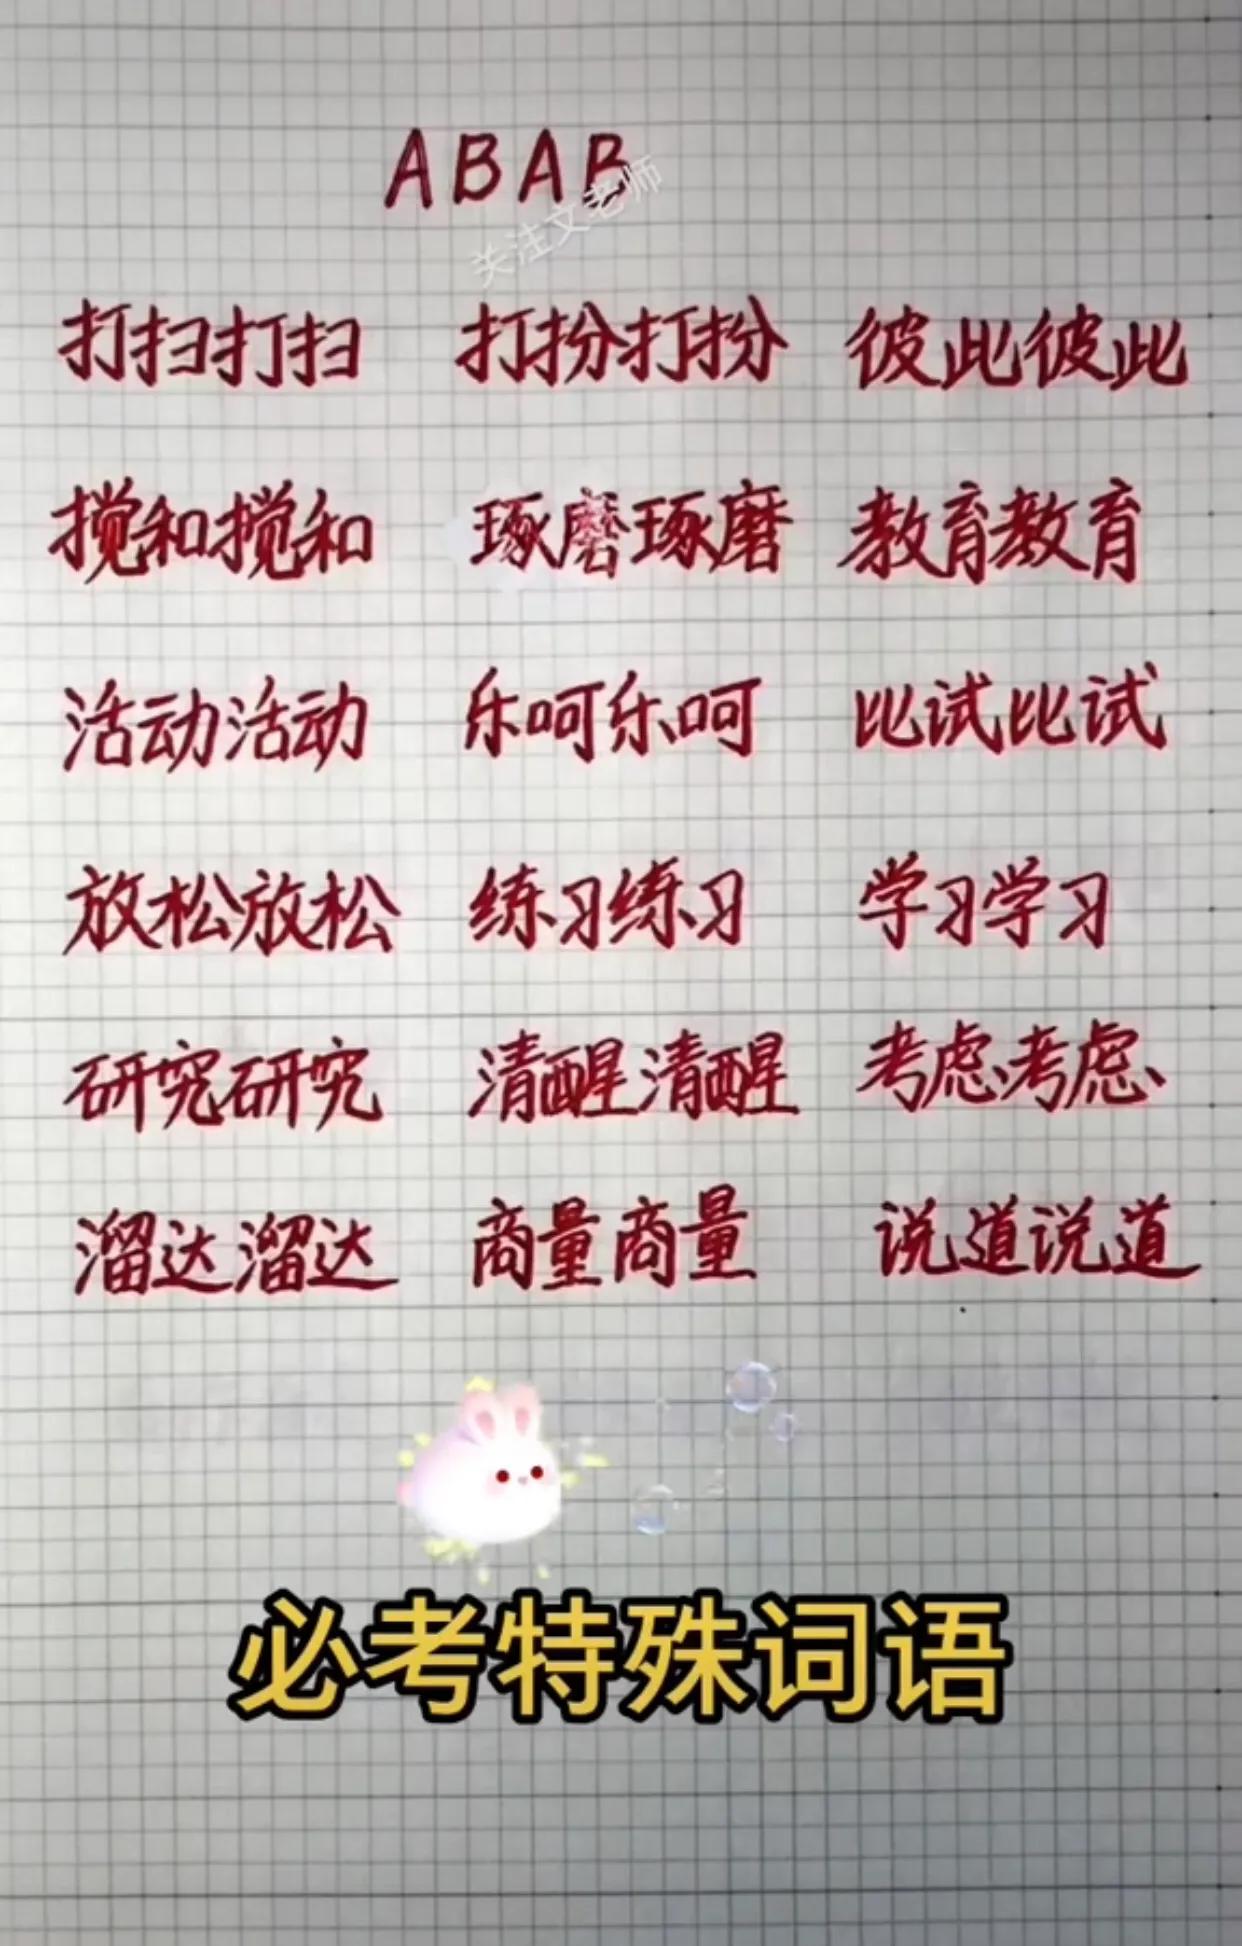 ABAB
关注文老师
打扫打扫 打扮打扮 彼此彼此
搅和搅和 琢磨琢磨 教育教育
活动活动 乐呵乐呵 比试比试
放松放松 练习练习 学习学习
研究研究 清醒清醒 考虑考虑
溜达溜达 商量商量 说道说道
必考特殊词语